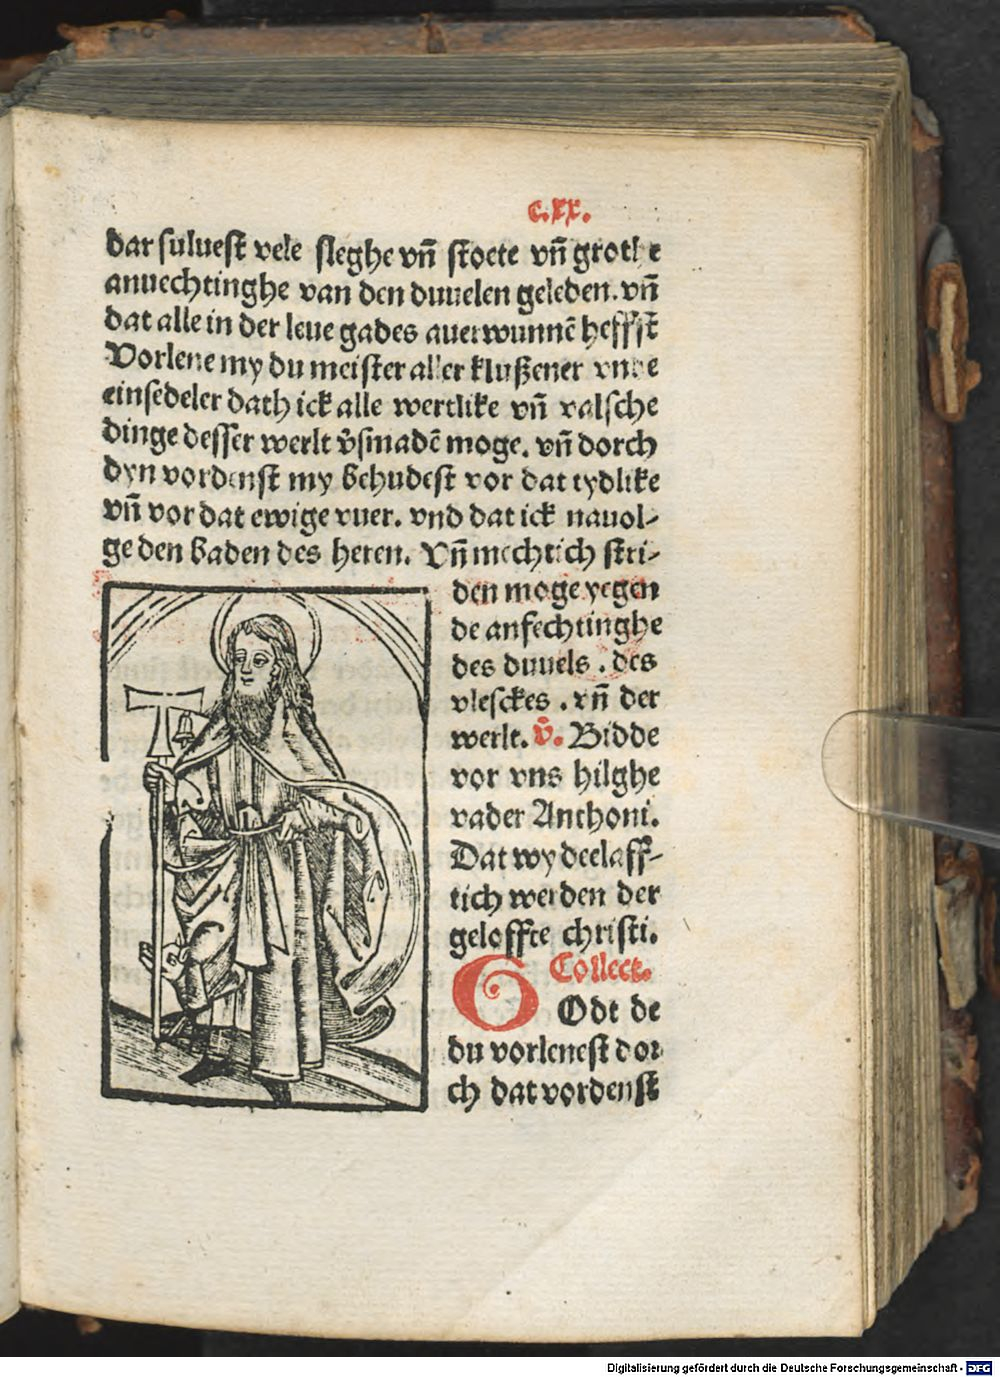 C.xx.
dar suluest vele sleghe vñ stoete vñ grothe
anuechtinghe van den duuelen geleden. vñ
dat alle in der leue gades auerwunnē heffst
Vorlene my du meister aller klußener vnde
einsedeler dath ick alle wertlike vñ valsche
dinge desser werlt v̄smadē moge. vñ dorch
dyn vordenst my behudest vor dat tydlike
vñ vor dat ewige vuer. vnd dat ick nauol-
ge den baden des heren. Vñ mechtich stri-
den moge yegen
de anfechtinghe
des duuels . des
vlesckes . vñ der
werlt. v̄. Bidde
vor vns hilghe
vader Anthoni.
Dat wy deelaff-
tich werden der
geloffte christi.
Collect.
GOdt de
du vorlenest dor
ch dat vordenst
Digitalisierung gefördert durch die Deutsche Forschungsgemeinschaft - DFG